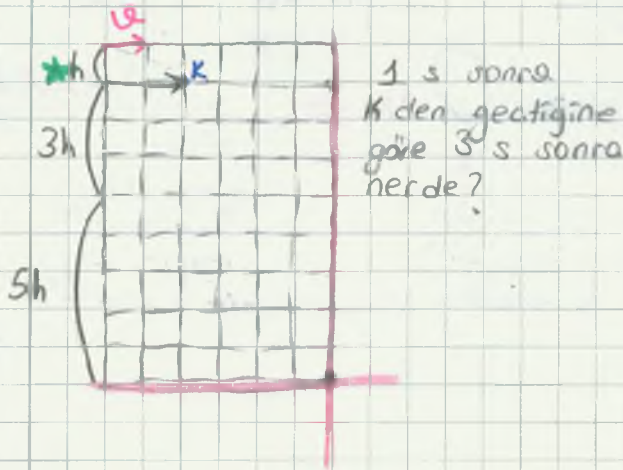 ϑ
h
K
3h
5h
1 s sonra
K den geçtiğine
göre 3 s sonra
nerde?